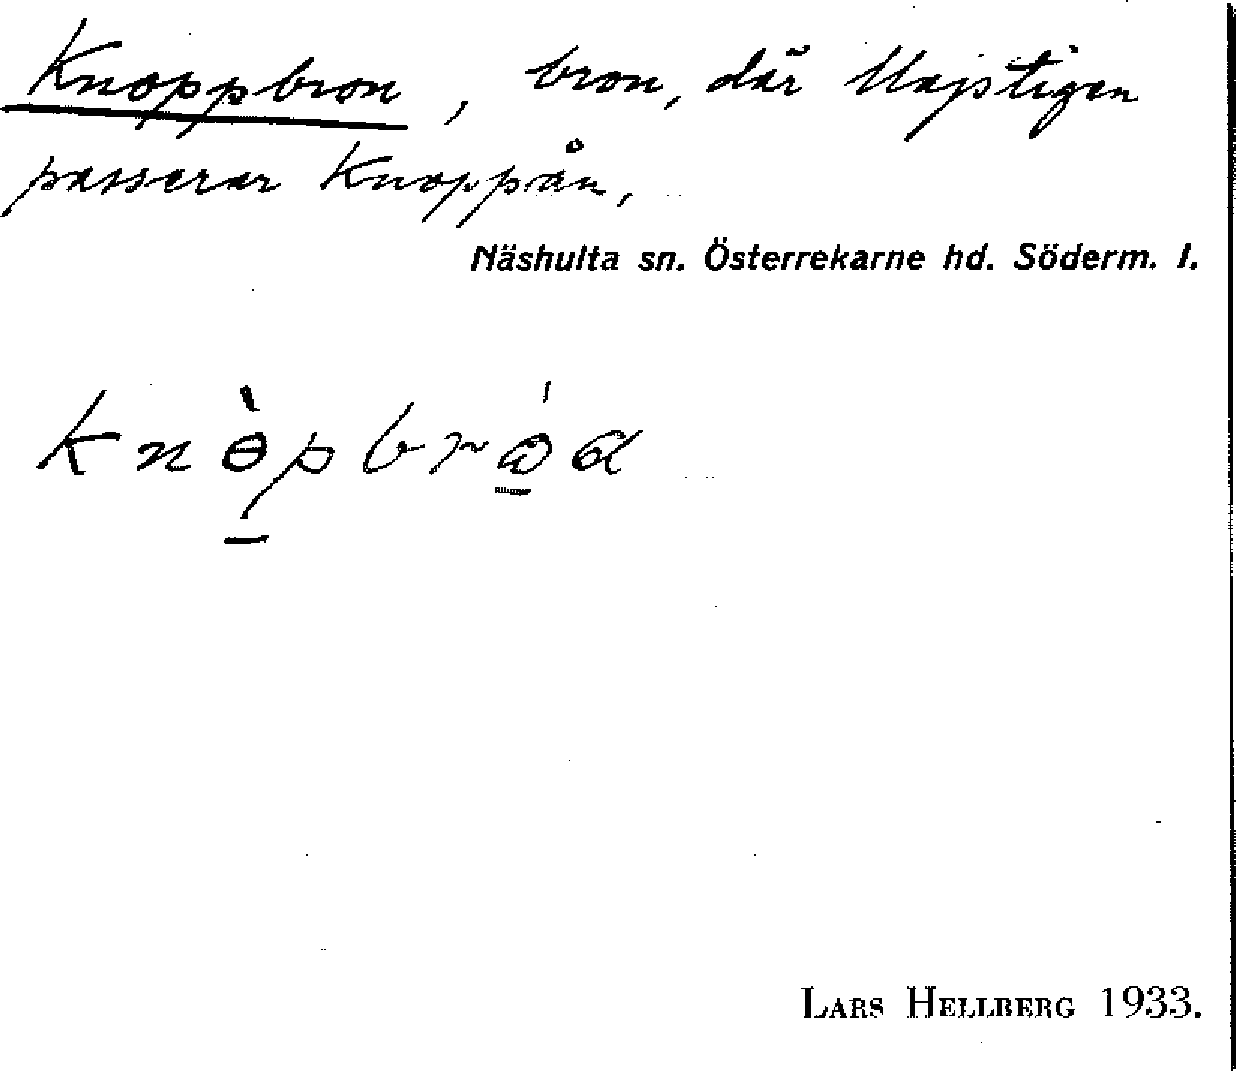 Knoppbron, bron, där Uajstigen
passerar Knoppån.
Näshulta sn. Österrekarne hd. Söderm. l.
LARS HELLBERG 1933.